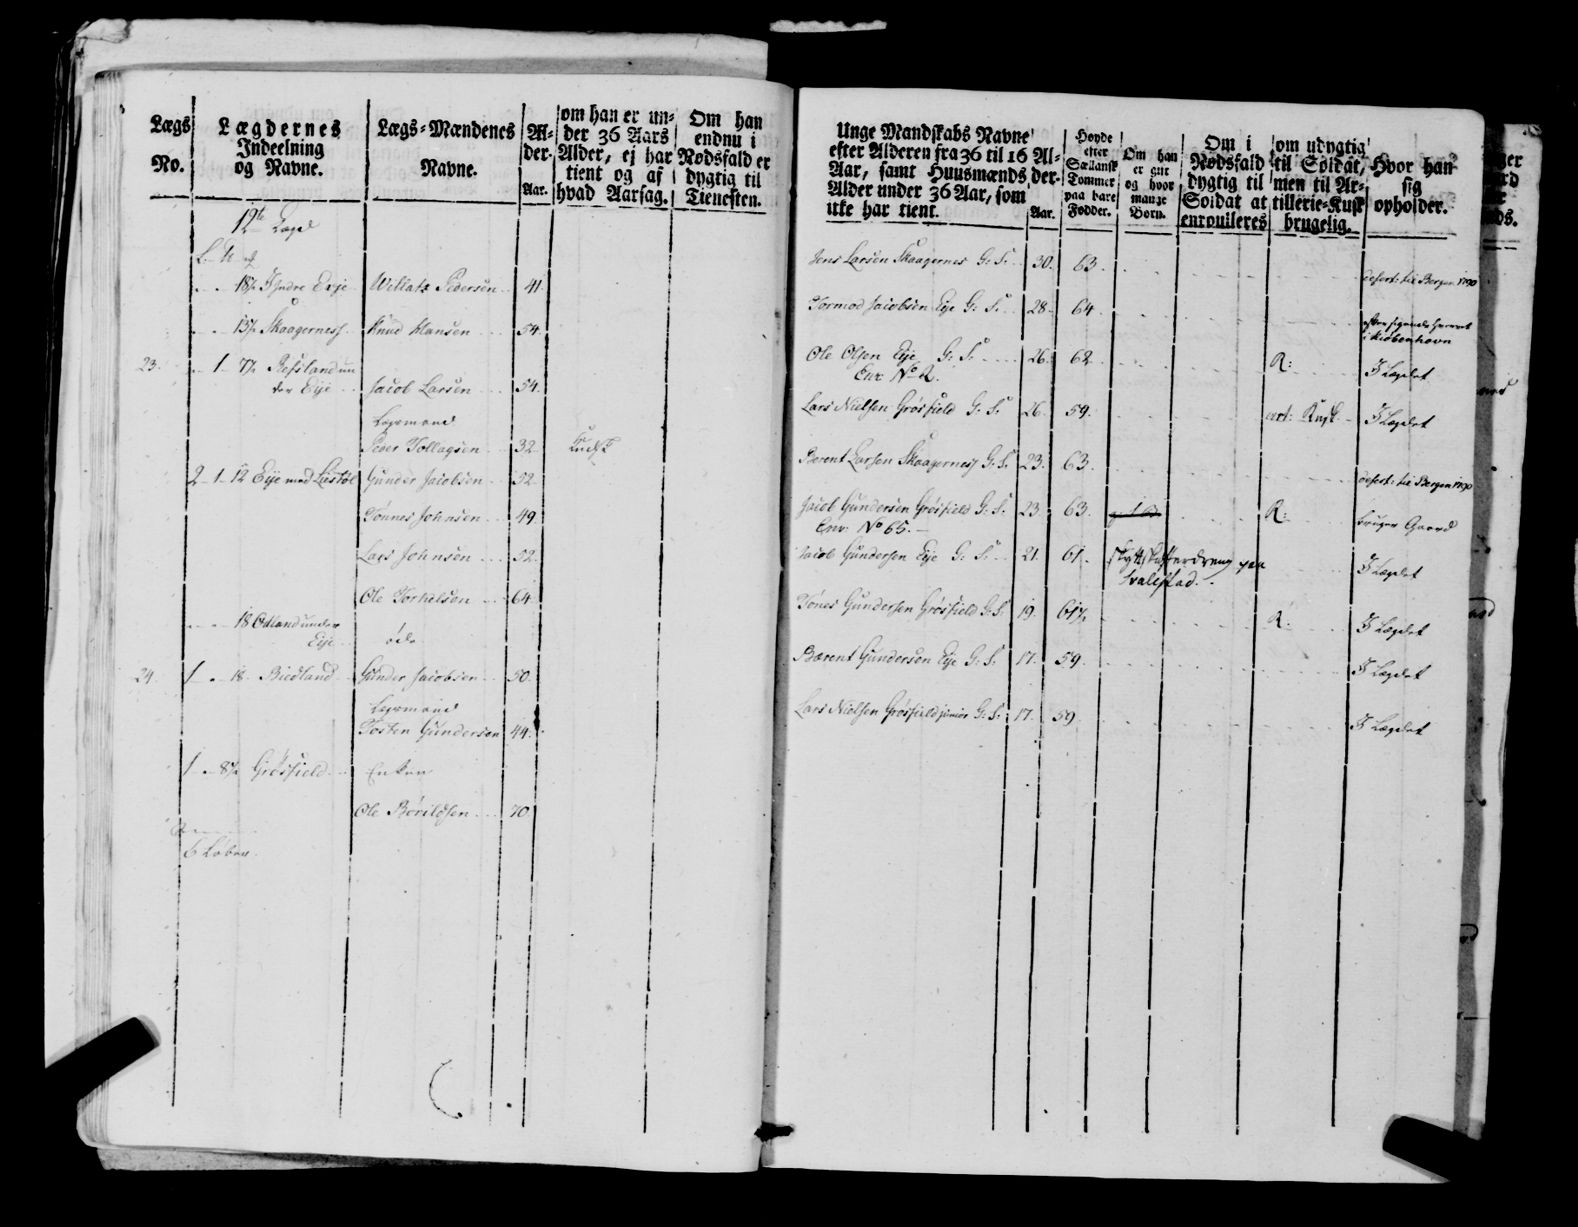 Lægs No.
Lægdernes Indeelning og Navne.
Lægs-Mændenes Navne.
Alder. Aar.
om han er under 36 Aars Alder, ej har tient og af hvad Aarsag.
Om han endnu i Nødsfald er dygtig til Tienesten.
19de Lægd
18½ Indre Eeje Pedersen 41.
13½ Skaagernes Knud Hansen 54.
23. 1 7½ Refsland un
der Eije Jacob Larsen 54.
Legsmand
Peder Tollagsen 32. Kudsk
2 1 12 Eije med Liestøl Gunder Jacobsen 52.
Tønnes Johnsen 49.
Lars Johnsen 52.
Ole Torkelsen 64.
18 Odland under
Eije øde
24. 1 18 Birkland Gunder Jacobsen 50.
Legsmand
Tosten Gundersen 44.
1 8½ Grøsfield Enken
Ole Børildsen 70.
6 Løber.
Unge Mandskabs Navne efter Alderen fra 36 til 16 Aar, samt Huusmænds Alder under 36 Aar, som ikke har tient.
Alder. Aar.
Høyde efter Sællandsk Tommer paa bare Fødder.
Om han er gift og hvor mange Børn.
Om i Nødsfald dygtig til Soldat at enroulleres
om udygtig til Soldat, men til Artillerie-Kusk brugelig.
Hvor han sig opholder.
Jens Larsen Skaagernes G: S. 30. 63. desert: til Bergen 1790
Tormod Jacobsen Eije G: S. 28. 64. efter sigende hvervet
i Kiøbenhavn
Ole Olsen Eije G: S. 26. 62. R: I Lægdet
Enr No 2.
Lars Nielsen Grøsfield G: S. 26. 59. art: Kusk I Lægdet
Berent Larsen Skaagernes G: S. 23. 63. desert: til Bergen 1790
Jacob Gundersen Grøsfield G: S. 23. 63. R: bruger Gaard
Enr: No 65.
Jacob Gundersen Eije G: S. 21. 61. I Lægdet
Tønes Gundersen Grøsfield G: S. 19. 61½ R: I Lægdet
Bærent Gundersen Eije G: S. 17. 59. I Lægdet
Lars Nielsen Grøsfield junior G: S. 17. 59. I Lægdet